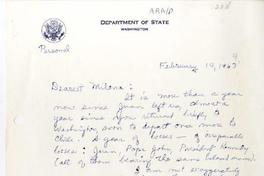 ARA/P
DEPARTMENT OF STATE
WASHINGTON
Personal
February 19, 1963
Dearest Milona:
It is more than a year
now since Juan left us, almost a
year since you returned briefly to
Washington, soon to depart once more to
Chile. A year of losses - of irreparable
losses: Juan, Pope John, President Kennedy
(all of them bearing the same blessed name).
I am not exaggerating